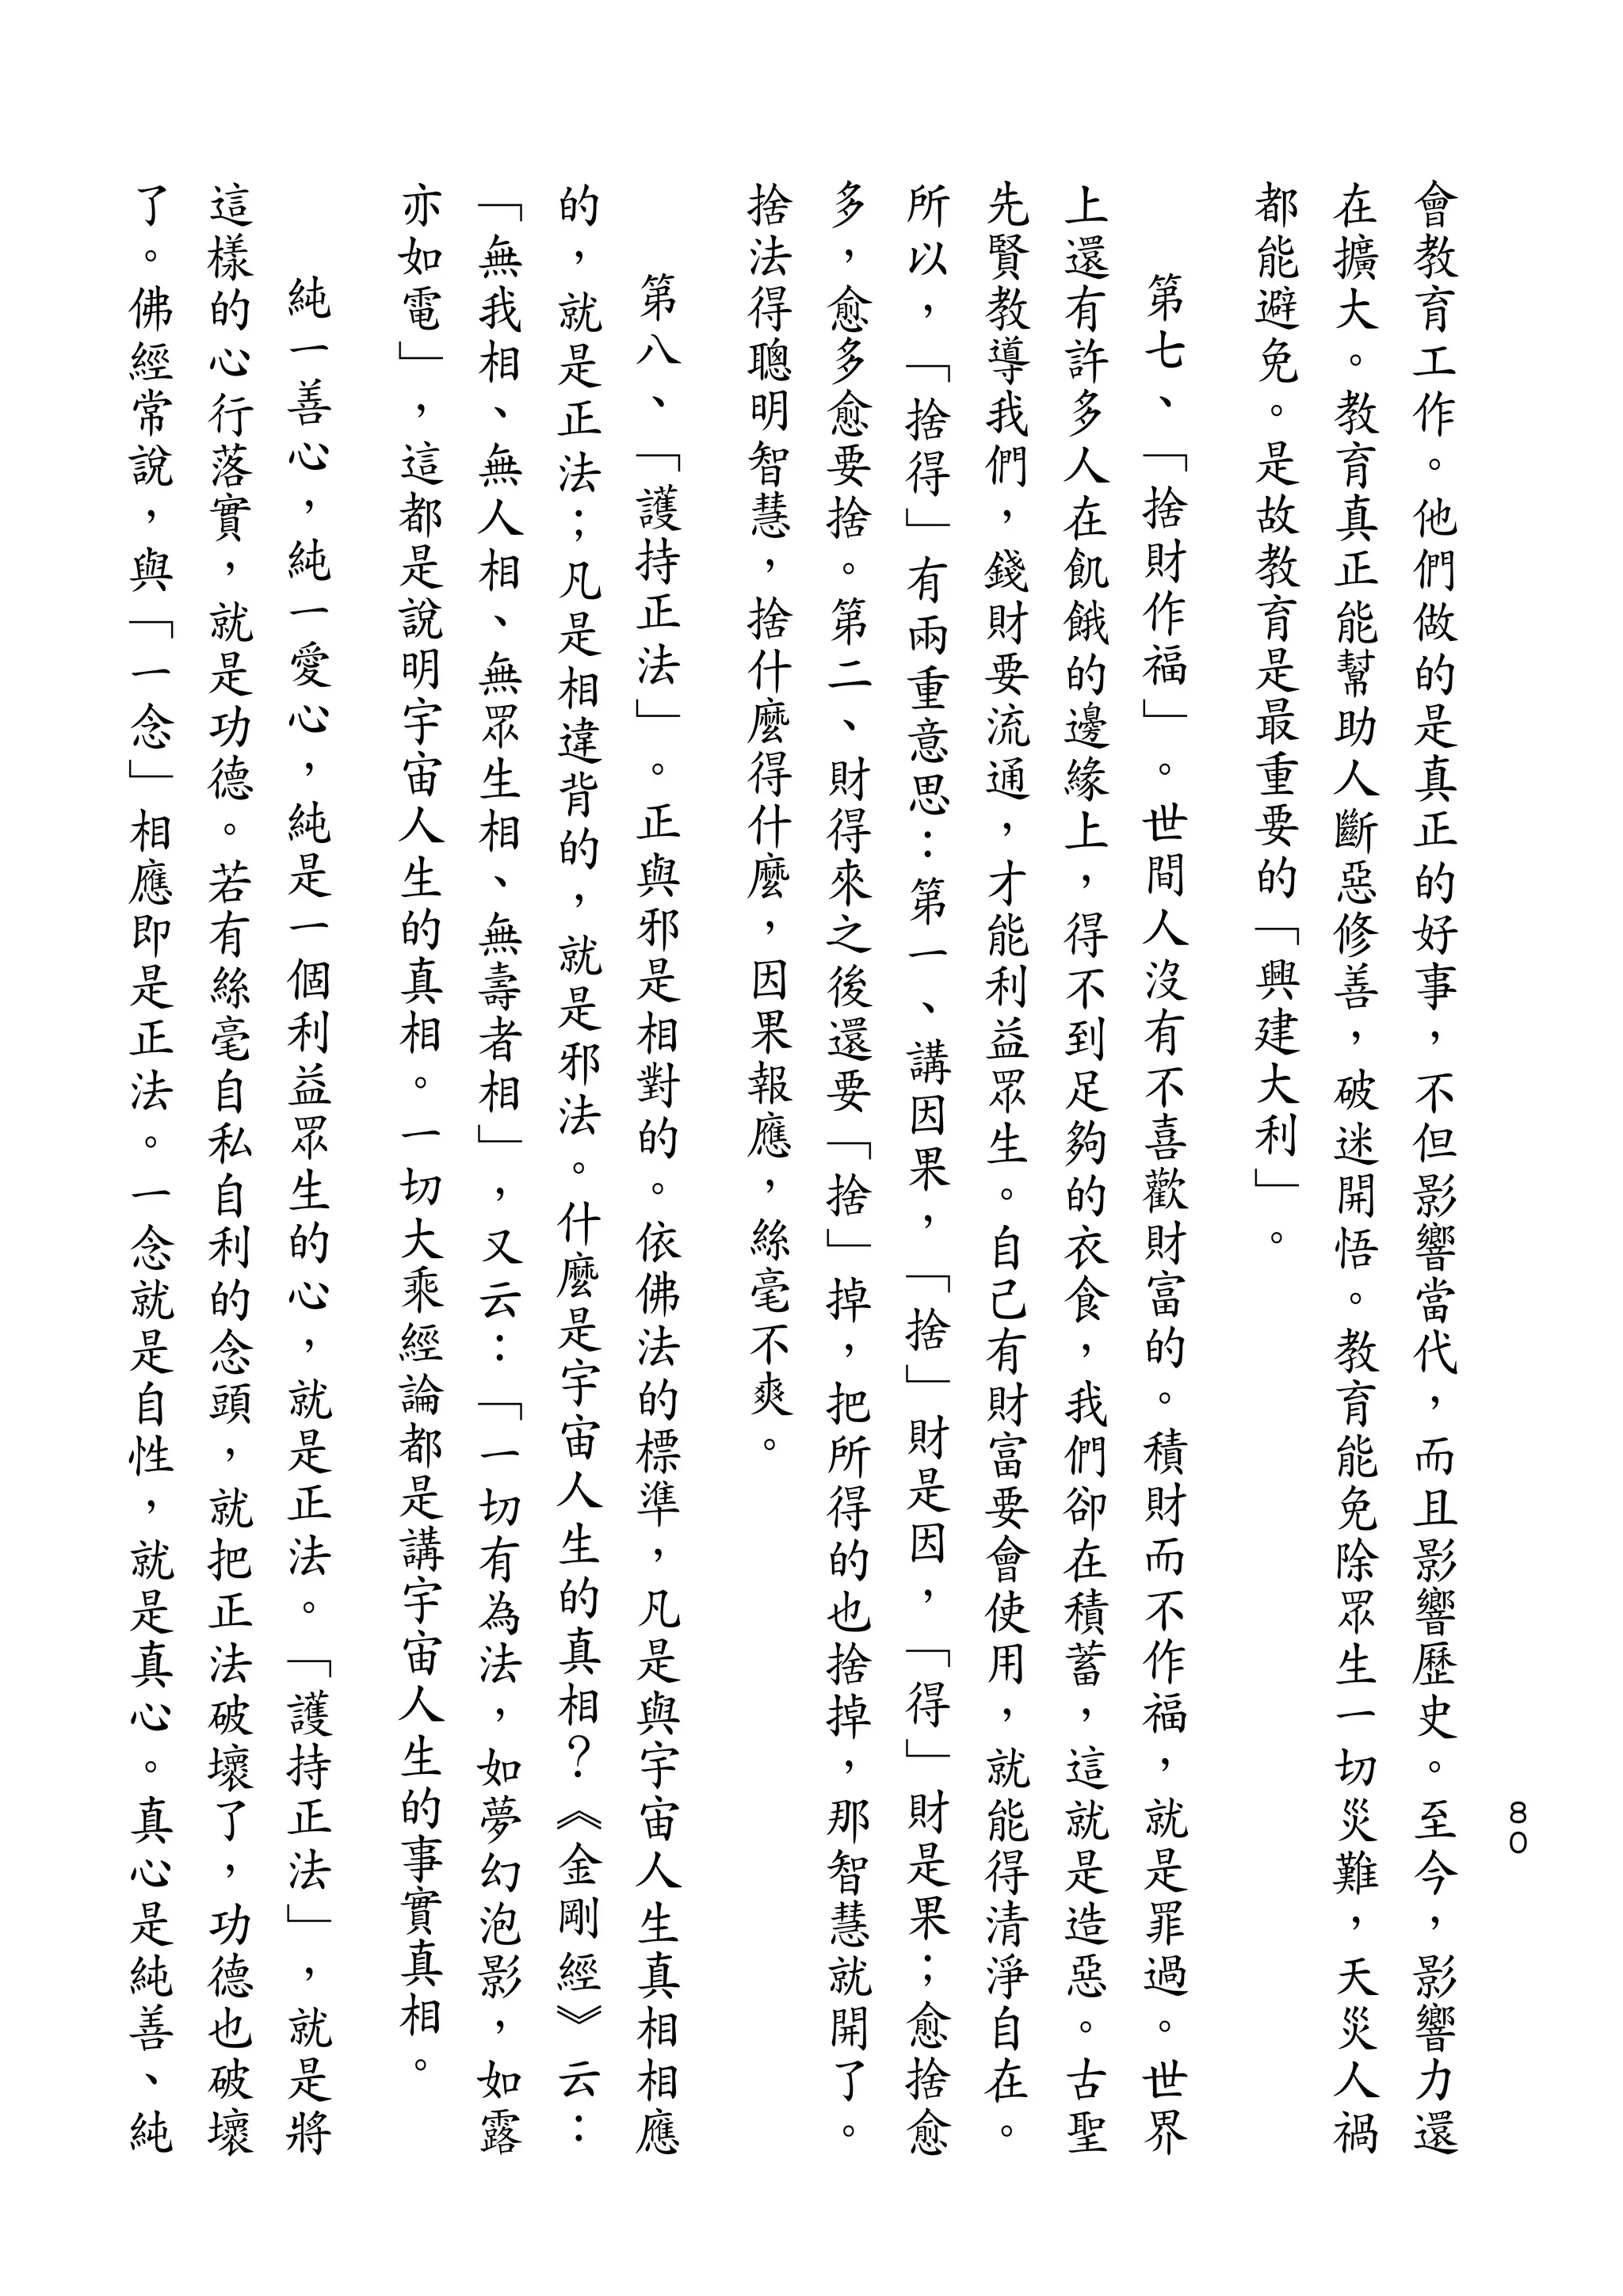 80
會教育工作。他們做的是真正的好事，不但影響當代，而且影響歷史。至今，影響力還
在擴大。教育真正能幫助人斷惡修善，破迷開悟。教育能免除眾生一切災難，天災人禍
都能避免。是故教育是最重要的「興建大利」。
第七、「捨財作福」。世間人沒有不喜歡財富的。積財而不作福，就是罪過。世界
上還有許多人在飢餓的邊緣上，得不到足夠的衣食，我們卻在積蓄，這就是造惡。古聖
先賢教導我們，錢財要流通，才能利益眾生。自己有財富要會使用，就能得清淨自在。
所以，「捨得」有兩重意思：第一、講因果，「捨」財是因，「得」財是果；愈捨愈
多，愈多愈要捨。第二、財得來之後還要「捨」掉，把所得的也捨掉，那智慧就開了。
捨法得聰明智慧，捨什麼得什麼，因果報應，絲毫不爽。
第八、「護持正法」。正與邪是相對的。依佛法的標準，凡是與宇宙人生真相相應
的，就是正法；凡是相違背的，就是邪法。什麼是宇宙人生的真相？《金剛經》云：
「無我相、無人相、無眾生相、無壽者相」，又云：「一切有為法，如夢幻泡影，如露
亦如電」，這都是說明宇宙人生的真相。一切大乘經論都是講宇宙人生的事實真相。
純一善心，純一愛心，純是一個利益眾生的心，就是正法。「護持正法」，就是將
這樣的心行落實，就是功德。若有絲毫自私自利的念頭，就把正法破壞了，功德也破壞
了。佛經常說，與「一念」相應即是正法。一念就是自性，就是真心。真心是純善、純